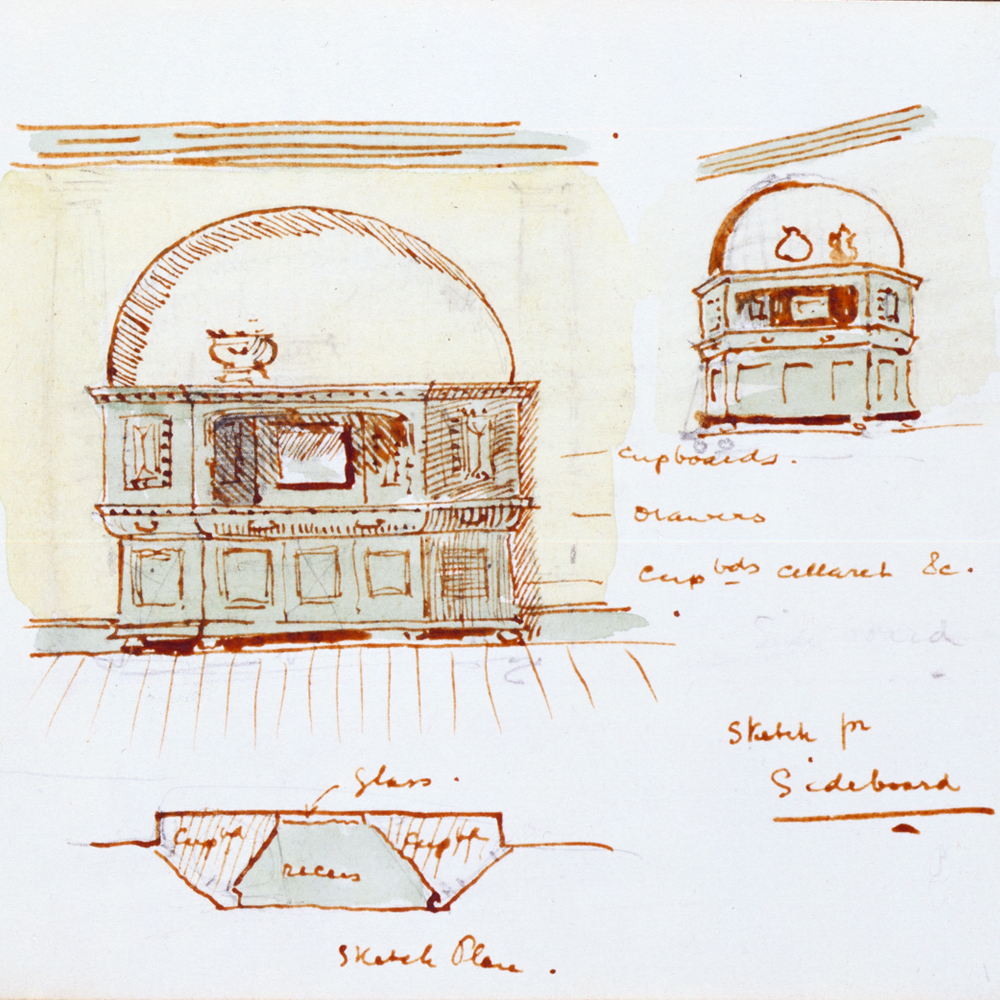 Cupboards.
Drawers
Cupbds cellaret &c.
Sideboard
Sketch for
Sideboard
Glass.
Cupbd
Cupbd
recess
Sketch Plan.